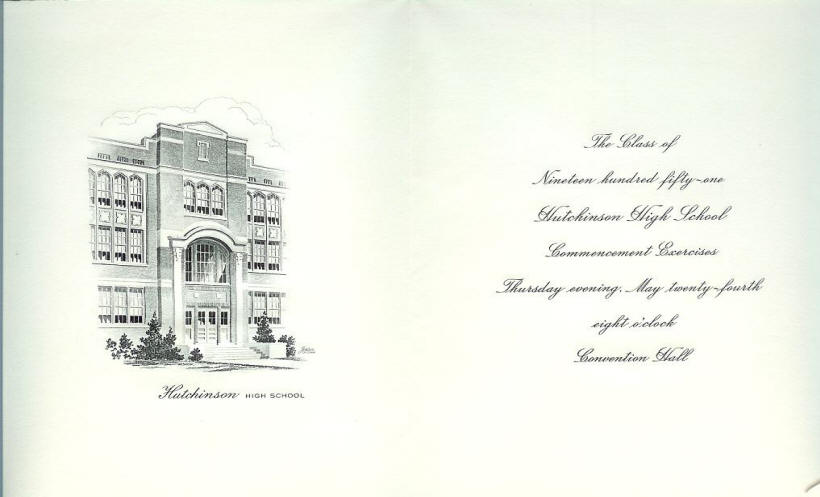 Hutchinson HIGH SCHOOL
The Class of
Nineteen hundred fifty-one
Hutchinson High School
Commencement Exercises
Thursday evening, May twenty-fourth
eight o'clock
Convention Hall